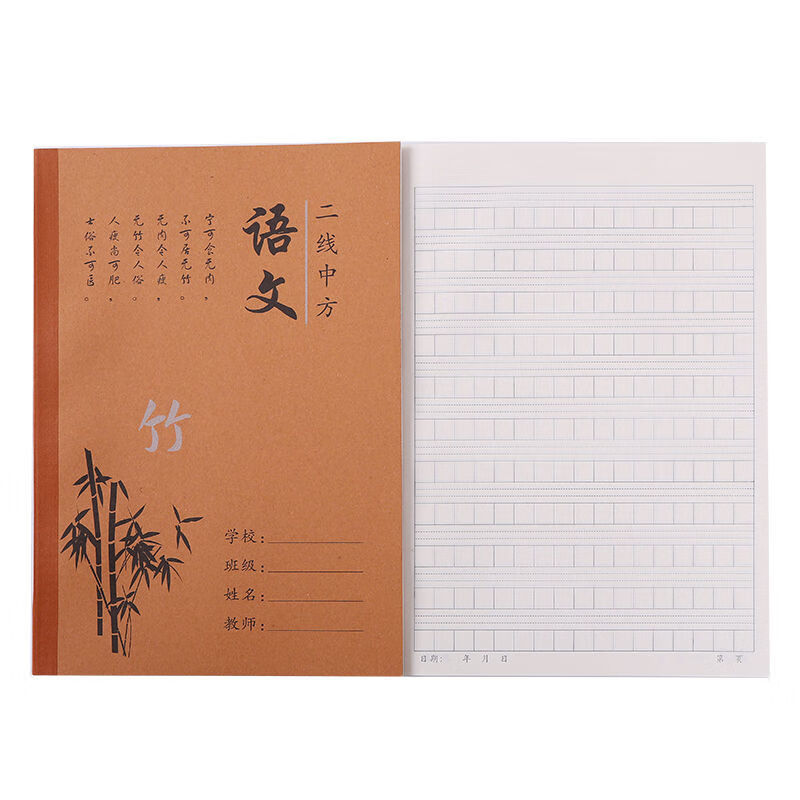 二线中方
语文
宁可食无肉，
不可居无竹。
无肉令人瘦，
无竹令人俗。
人瘦尚可肥，
士俗不可医。
竹
学校：
班级：
姓名：
教师：
日期： 年 月 日
第 页